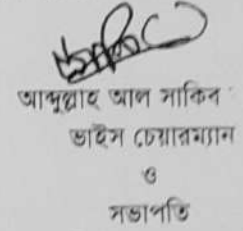 আব্দুল্লাহ আল সাকিব
ভাইস চেয়ারম্যান
ও
সভাপতি